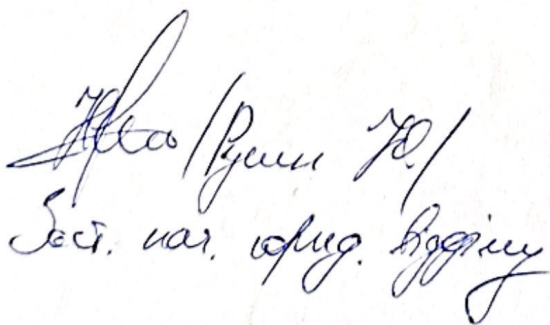 /Русин Ю./
Заст. нач. юрид. відділу